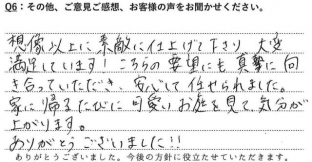 Q6：その他、ご意見ご感想、お客様の声をお聞かせください。
想像以上に素敵に仕上げて下さり、大変
満足しています！こちらの要望にも真摯に向
き合っていただき、安心して任せられました。
家に帰るたびに可愛いお庭を見て気分が
上がります。
ありがとうございました!!
ありがとうございました。今後の方針に役立たせていただきます。